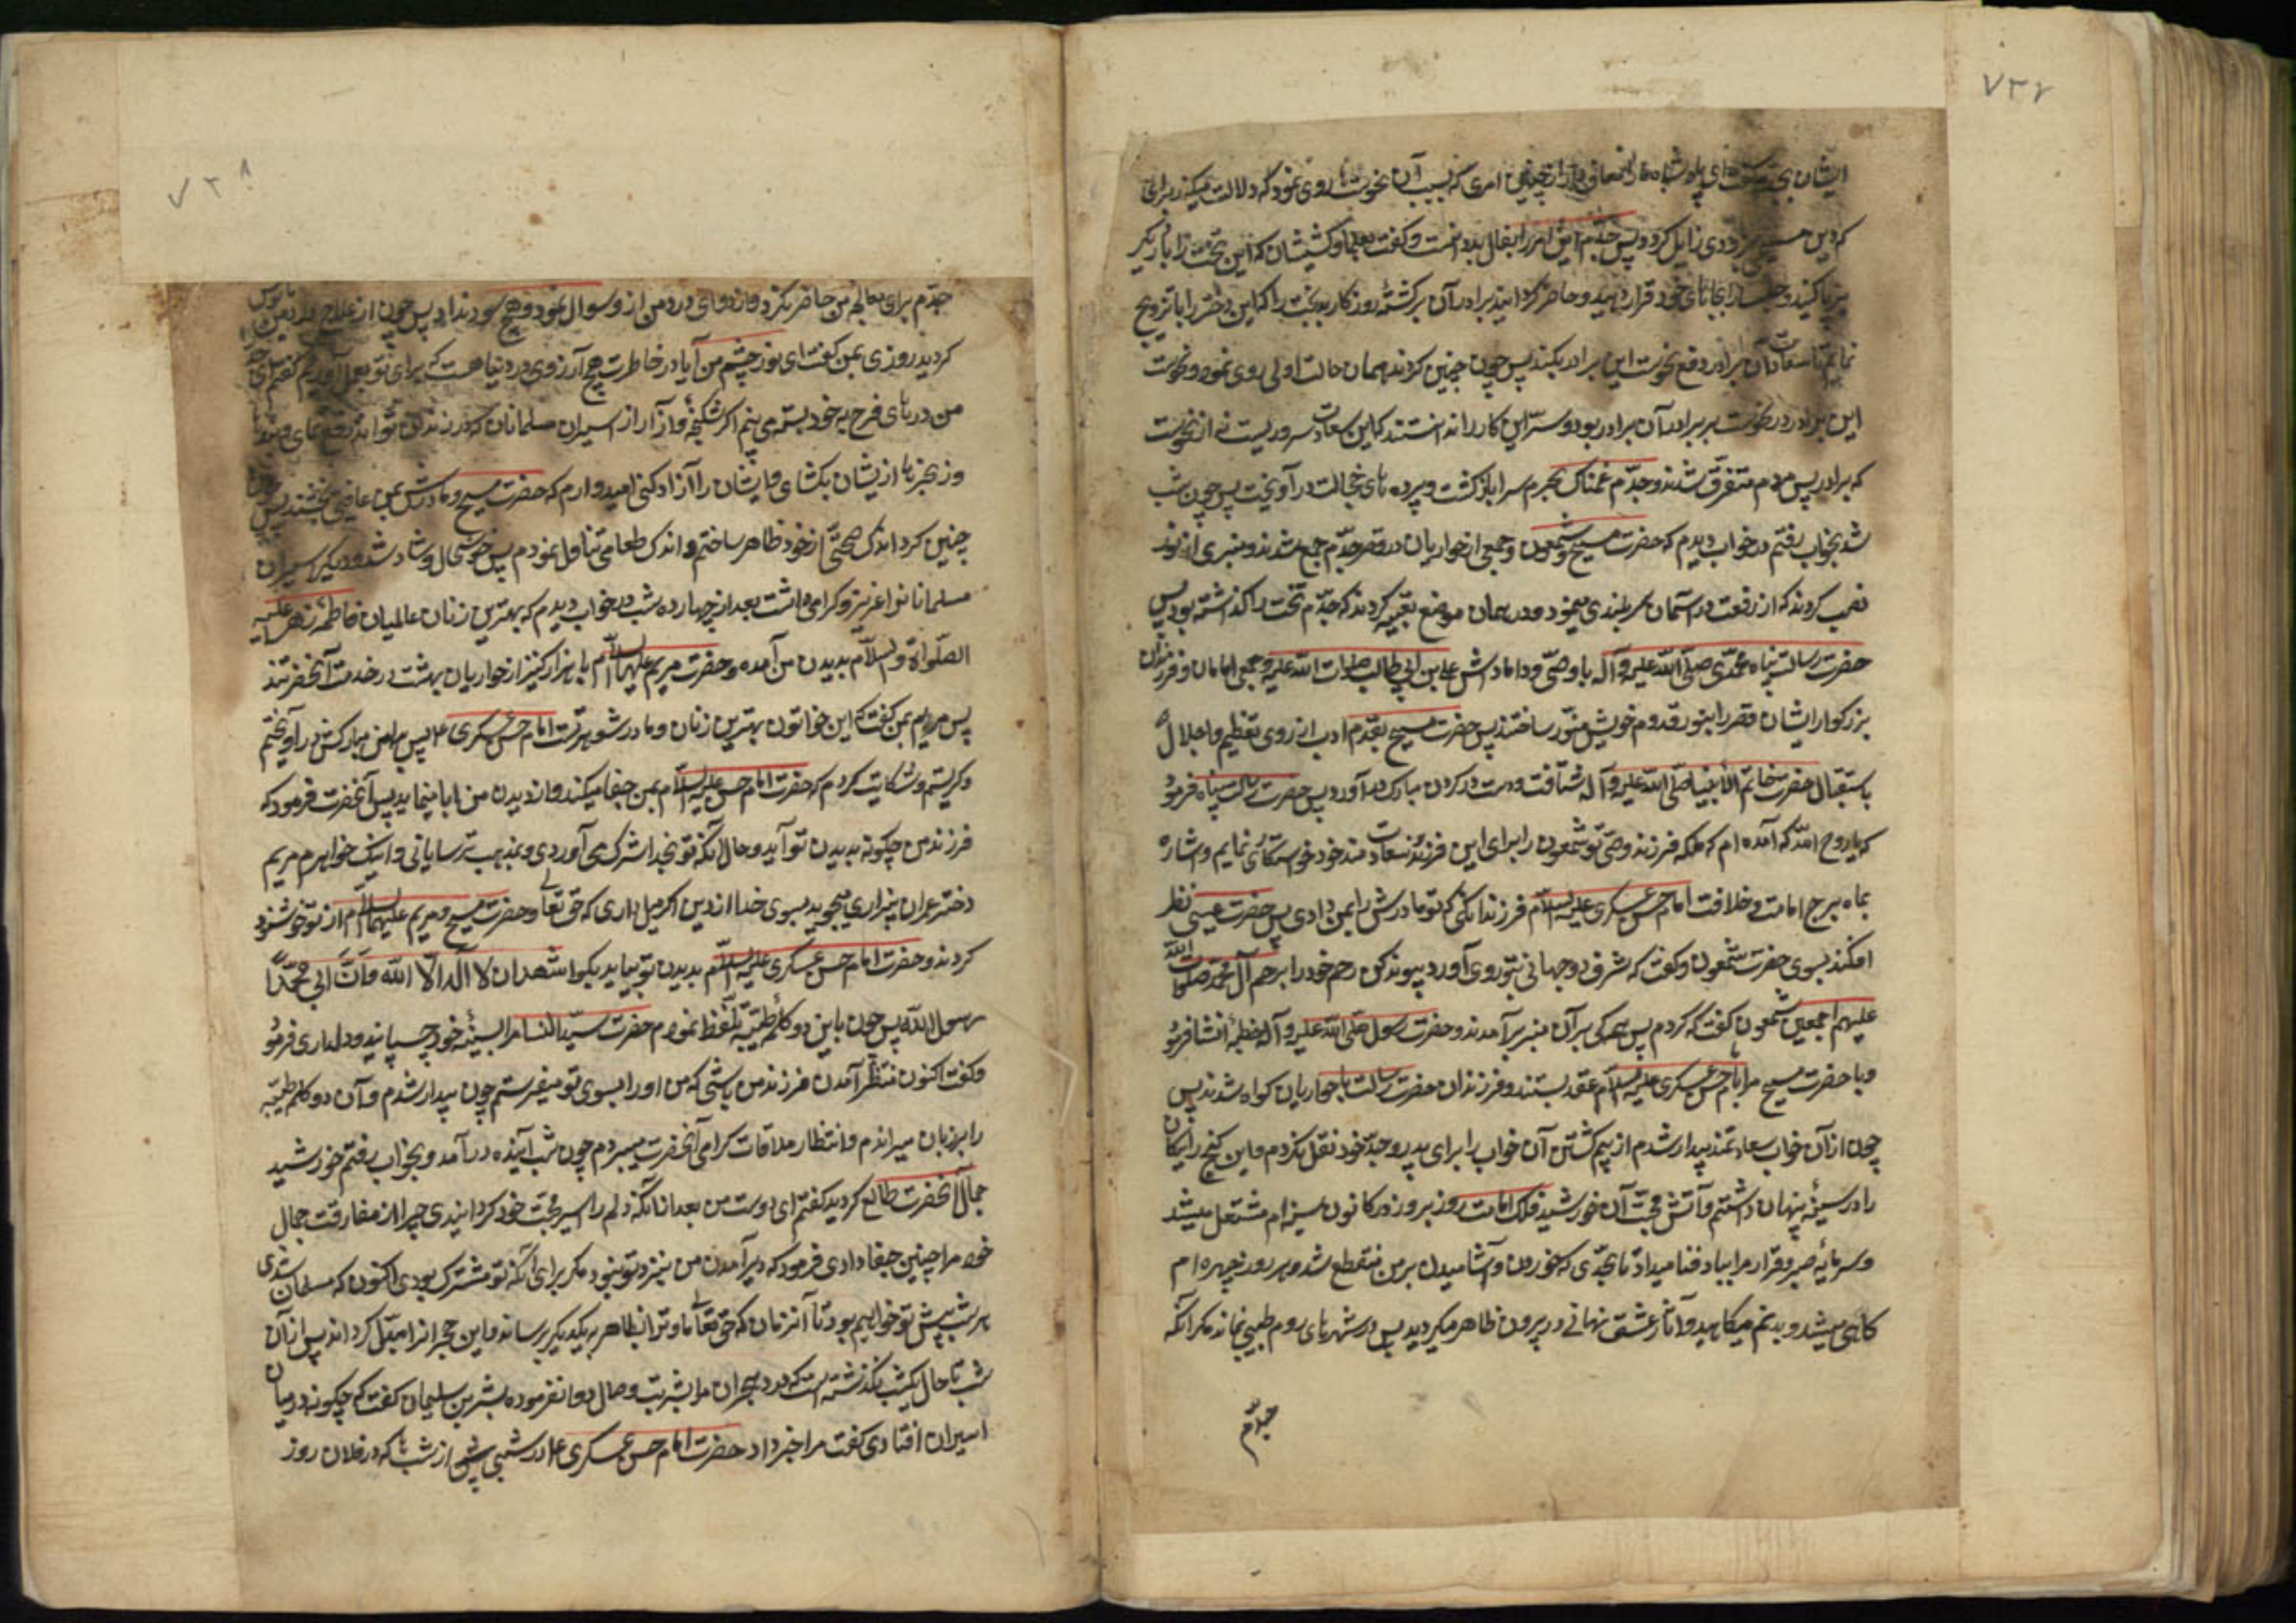 ۷۳۷
ایشان بجدم گفتند ای پادشاه ما را معاف دار از چنین امری که بسبب آن نحوستها روی نمود که دلالت میکند بر اینکه
که دین مسیحی بزودی زایل گردد پس جدّم این امر را بفال بد دانست و گفت بعلما و کشیشان که این تخت را بار دیگر
برپا کنید و چلیپاها را بجای خود قرار دهید و حاضر گردانید برادر آن برگشتهٔ روزگار بدبخت را که این دختر را باو تزویج
نمایم تا سعادت آن برادر دفع نحوست این برادر بکند پس چون چنین کردند همان حالت اولی روی نمود و نحوست
این برادر در نحوست برابر آن برادر بود و سرّ این کار را ندانستند که این سعادت سروریست نه از نحوست
که برادر پس مردم متفرّق شدند و جدّم غمناک بحرم سرا بازگشت و پرده های خجالت در آویخت پس چون شب
شد بخواب رفتم در خواب دیدم که حضرت مسیح و شمعون و جمعی از حواریان در قصر جدّم جمع شدند و منبری از نور
نصب کردند که از رفعت بر آسمان سربلندی مینمود و در همان موضع تعبیه کردند که جدّم تخت را گذاشته بود پس
حضرت رسالت پناه محمّدی صلّی الله علیه و آله با وصیّ و دامادش علی بن ابی طالب صلوات الله علیه و جمعی امامان و فرزندان
بزرگوار ایشان قصر را بنور قدوم خویش منوّر ساختند پس حضرت مسیح بقدم ادب از روی تعظیم و اجلال
باستقبال حضرت خاتم الأنبیا صلّی الله علیه و آله شتافت و دست در گردن مبارک در آورد پس حضرت رسالت پناه فرمود
که یا روح الله که آمده ام که ملکه فرزند وصیّ تو شمعون را برای این فرزند سعادتمند خود خواستگاری نمایم و اشاره
بماه برج امامت و خلافت امام حسن عسکری علیه السلام فرزند آنکس که تو نامه اش را بمن دادی پس حضرت عیسی نظر
افکند بسوی حضرت شمعون و گفت که شرف دو جهانی بتو روی آورد پیوند کن رحم خود را برحم آل محمّد صلوات الله
علیهم اجمعین شمعون گفت که کردم پس همگی بر آن منبر برآمدند و حضرت رسول صلّی الله علیه و آله خطبهٔ انشا فرمود
و با حضرت مسیح مرا بامام حسن عسکری علیه السلام عقد بستند و فرزندان حضرت رسالت با حواریان گواه شدند پس
چون از آن خواب سعادتمند بیدار شدم از بیم کشتن آن خواب را برای پدر و جدّ خود نقل نکردم و این گنج رایگان
را در سینه پنهان داشتم و آتش محبّت آن خورشید فلک امامت روز بروز در کانون سینه ام مشتعل میشد
و سرمایهٔ صبر و قرار مرا بباد فنا میداد تا بحدّی که خوردن و آشامیدن بر من منقطع شد و هر روز چهره ام
کاهی میشد و بدنم میکاهید و آثار عشق نهانی در بیرون ظاهر میگردید پس در شهرهای روم طبیبی نماند مگر آنکه
جدّم
۷۳۸
جدّم برای معالجهٔ من حاضر نکرد و از دوای درد من از او سوال ننمود و هیچ سود نداد پس چون از علاج درد من مأیوس
گردید روزی بمن گفت ای نور چشم من آیا در خاطرت هیچ آرزوی در دنیا هست که برای تو بعمل آورم گفتم ای جد
من درهای فرح بر خود بسته می بینم اگر شکنجه و آزار از اسیران مسلمانان که در زندان تواند دفع نمای و بندها
و زنجیرها از یشان بکشای و ایشان را آزاد کنی امیدوارم که حضرت مسیح و مادرش بمن عافیتی بخشند پس چون
چنین کرد اندک صحّتی از خود ظاهر ساختم و اندک طعامی تناول نمودم پس خوشحال و شاد شد و دیگر اسیران
مسلمانان را عزیز و گرامی داشت بعد از چهارده شب در خواب دیدم که بهترین زنان عالمیان فاطمهٔ زهرا علیها
الصلواة والسلام بدیدن من آمده و حضرت مریم علیها السلام با هزار کنیز از حواریان بهشت در خدمت آنحضرتند
پس مریم بمن گفت که این خواتون بهترین زنان و مادر شوهر تست امام حسن عسکری ع پس بدامن مبارکش درآویختم
و گریستم و شکایت کردم که حضرت امام حسن علیه السلام بمن جفا میکند و از دیدن من ابا مینماید پس آنحضرت فرمود که
فرزند من چگونه بدیدن تو آید و حال آنکه تو بخدا شرک می آوردی و بمذهب ترسایانی و اینک خواهرم مریم
دختر عمران بیزاری میجوید بسوی خدا از دین تو اگر میل داری که حق تعالی و حضرت مسیح و مریم علیهما السلام از تو خوشنود
گردند و حضرت امام حسن عسکری علیه السلام بدیدن تو بیاید بگو اشهد ان لا اله الّا الله و انّ ابی محمّداً
رسول الله پس چون باین دو کلمهٔ طیّبه تلفّظ نمودم حضرت سیّد النسا مرا بسینهٔ خود چسپانید و دلداری فرمود
و گفت اکنون منتظر آمدن فرزند من باشی که من او را بسوی تو میفرستم چون بیدار شدم و آن دو کلمهٔ طیّبه
را بر زبان میراندم و انتظار ملاقات گرامی آنحضرت میبردم چون شب آینده درآمد و بخواب رفتم خورشید
جمال آنحضرت طالع گردید گفتم ای دوست من بعد از آنکه دلم را اسیر محبّت خود گردانیدی چرا از مفارقت جمال
خود مرا چنین جفا دادی فرمود که دیر آمدن من بنزد تو نبود مگر برای آنکه تو مشرک بودی اکنون که مسلمان شدی
هر شب پیش تو خواهیم بود تا آنزمان که حق تعالی ما و ترا بظاهر بیکدیگر برساند و این هجرانرا مبدّل گرداند پس از آن
شب تا حال یکشب نگذشته است که درد هجران مرا بشربت وصال دوا نفرموده بشر بن سلیمان گفت که چگونه در میان
اسیران افتادی گفت مرا خبر داد حضرت امام حسن عسکری ع در شبی از شبها که در فلان روز